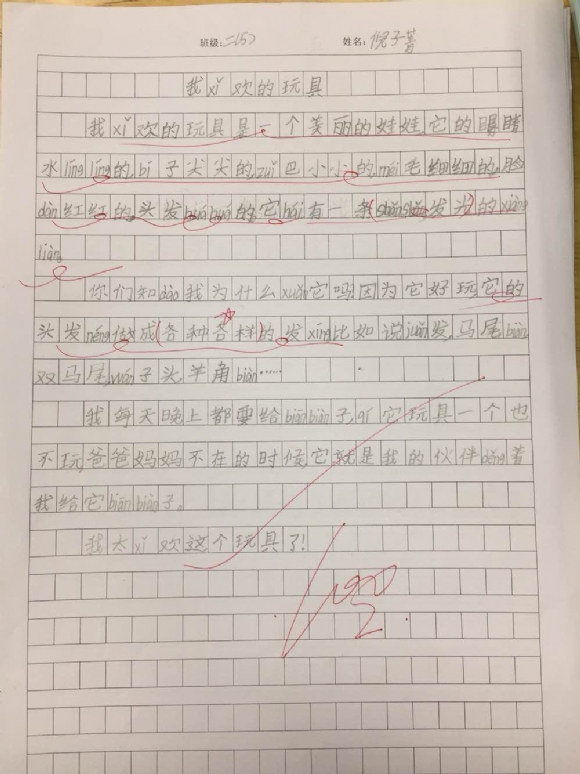 班级:二(5) 姓名:倪子菁
我xǐ欢的玩具
我xǐ欢的玩具是一个美丽的娃娃,它的眼睛
水līnglīng的,bí子尖尖的,zuǐ巴小小的,méi毛细细的,脸
dàn红红的,头发 的,它hái有一条 发光的xiàng
liàn。
你们知dào我为什么xuǎn它吗?因为它好玩,它的
头发néng做成各种各样的发xíng比如说juǎn发,马尾biàn
双马尾,wán子头,羊角biàn……
我每天晚上都要给biānbiàn子,qí它玩具一个也
不玩,爸爸妈妈不在的时候,它就是我的伙伴,děng着
我给它biānbiàn子。
我太xǐ欢这个玩具了!